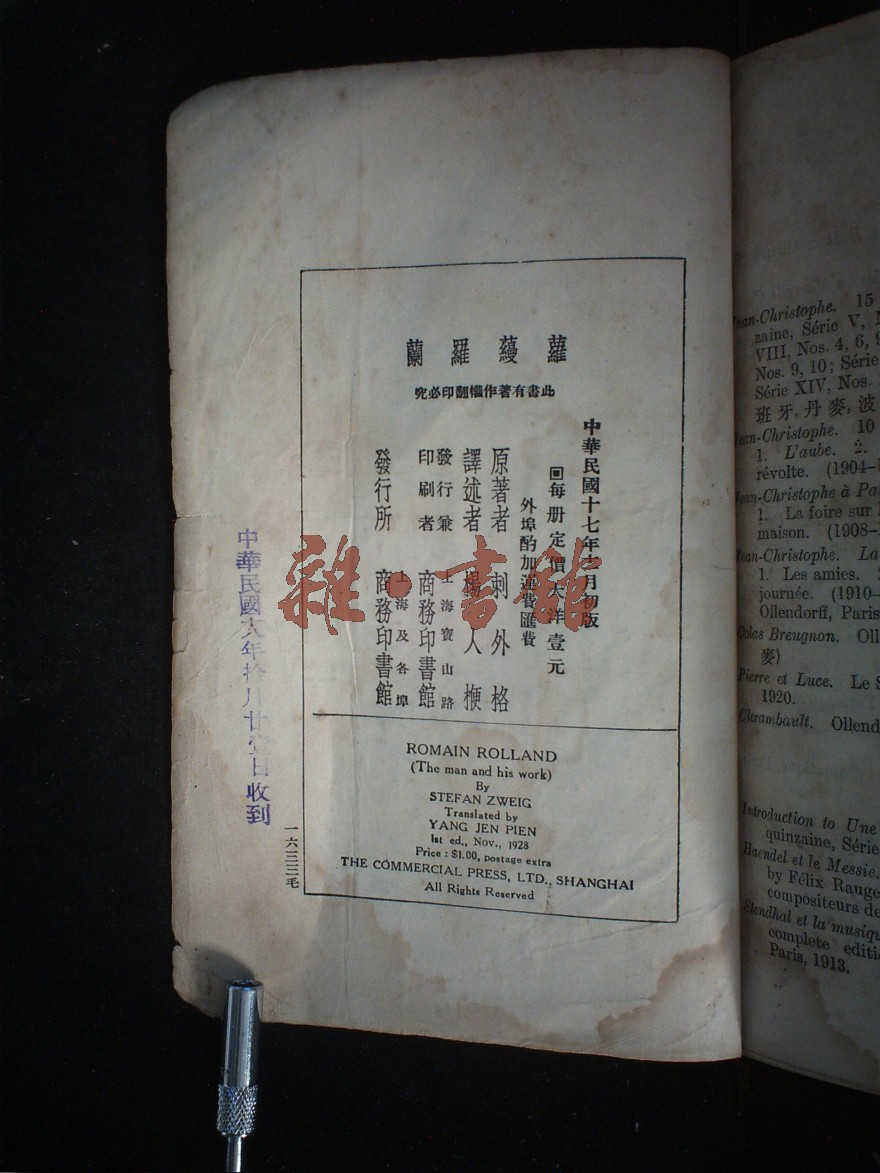 蘿蔓羅蘭
此書有著作權翻印必究
中華民國十七年月初版
回每册定價大洋壹元
外埠酌加運費匯費
原著者 刺外格
譯述者 楊人楩
發行兼印刷者 上海寶山路 商務印書館
發行所 上海及各埠 商務印書館
ROMAIN ROLLAND
(The man and his work)
By
STEFAN ZWEIG
Translated by
YANG JEN PIEN
1st ed., Nov., 1928
Price : $1.00, postage extra
THE COMMERCIAL PRESS, LTD., SHANGHAI
All Rights Reserved
中華民國十八年拾月廿壹日收到
一六二三毛
雜·書館
Jean-Christophe. 15
zaine, Série V,
VIII, Nos. 4, 6, 9
Nos. 9, 10; Série
Série XIV, Nos.
班牙,丹麥,波
Jean-Christophe. 10
1. L'aube. 2.
révolte. (1904-1
Jean-Christophe à Pa
1. La foire sur
maison. (1908-
Jean-Christophe. La
1. Les amies.
journée. (1910-
Ollendorff, Paris
Colas Breugnon. Oll
麥)
Pierre et Luce. Le S
1920.
Clerambault. Ollend
Introduction to Une
quinzaine, Série
Haendel et le Messie.
by Félix Rauge
compositeurs de
Stendhal et la musiqu
complete editi
Paris, 1913.